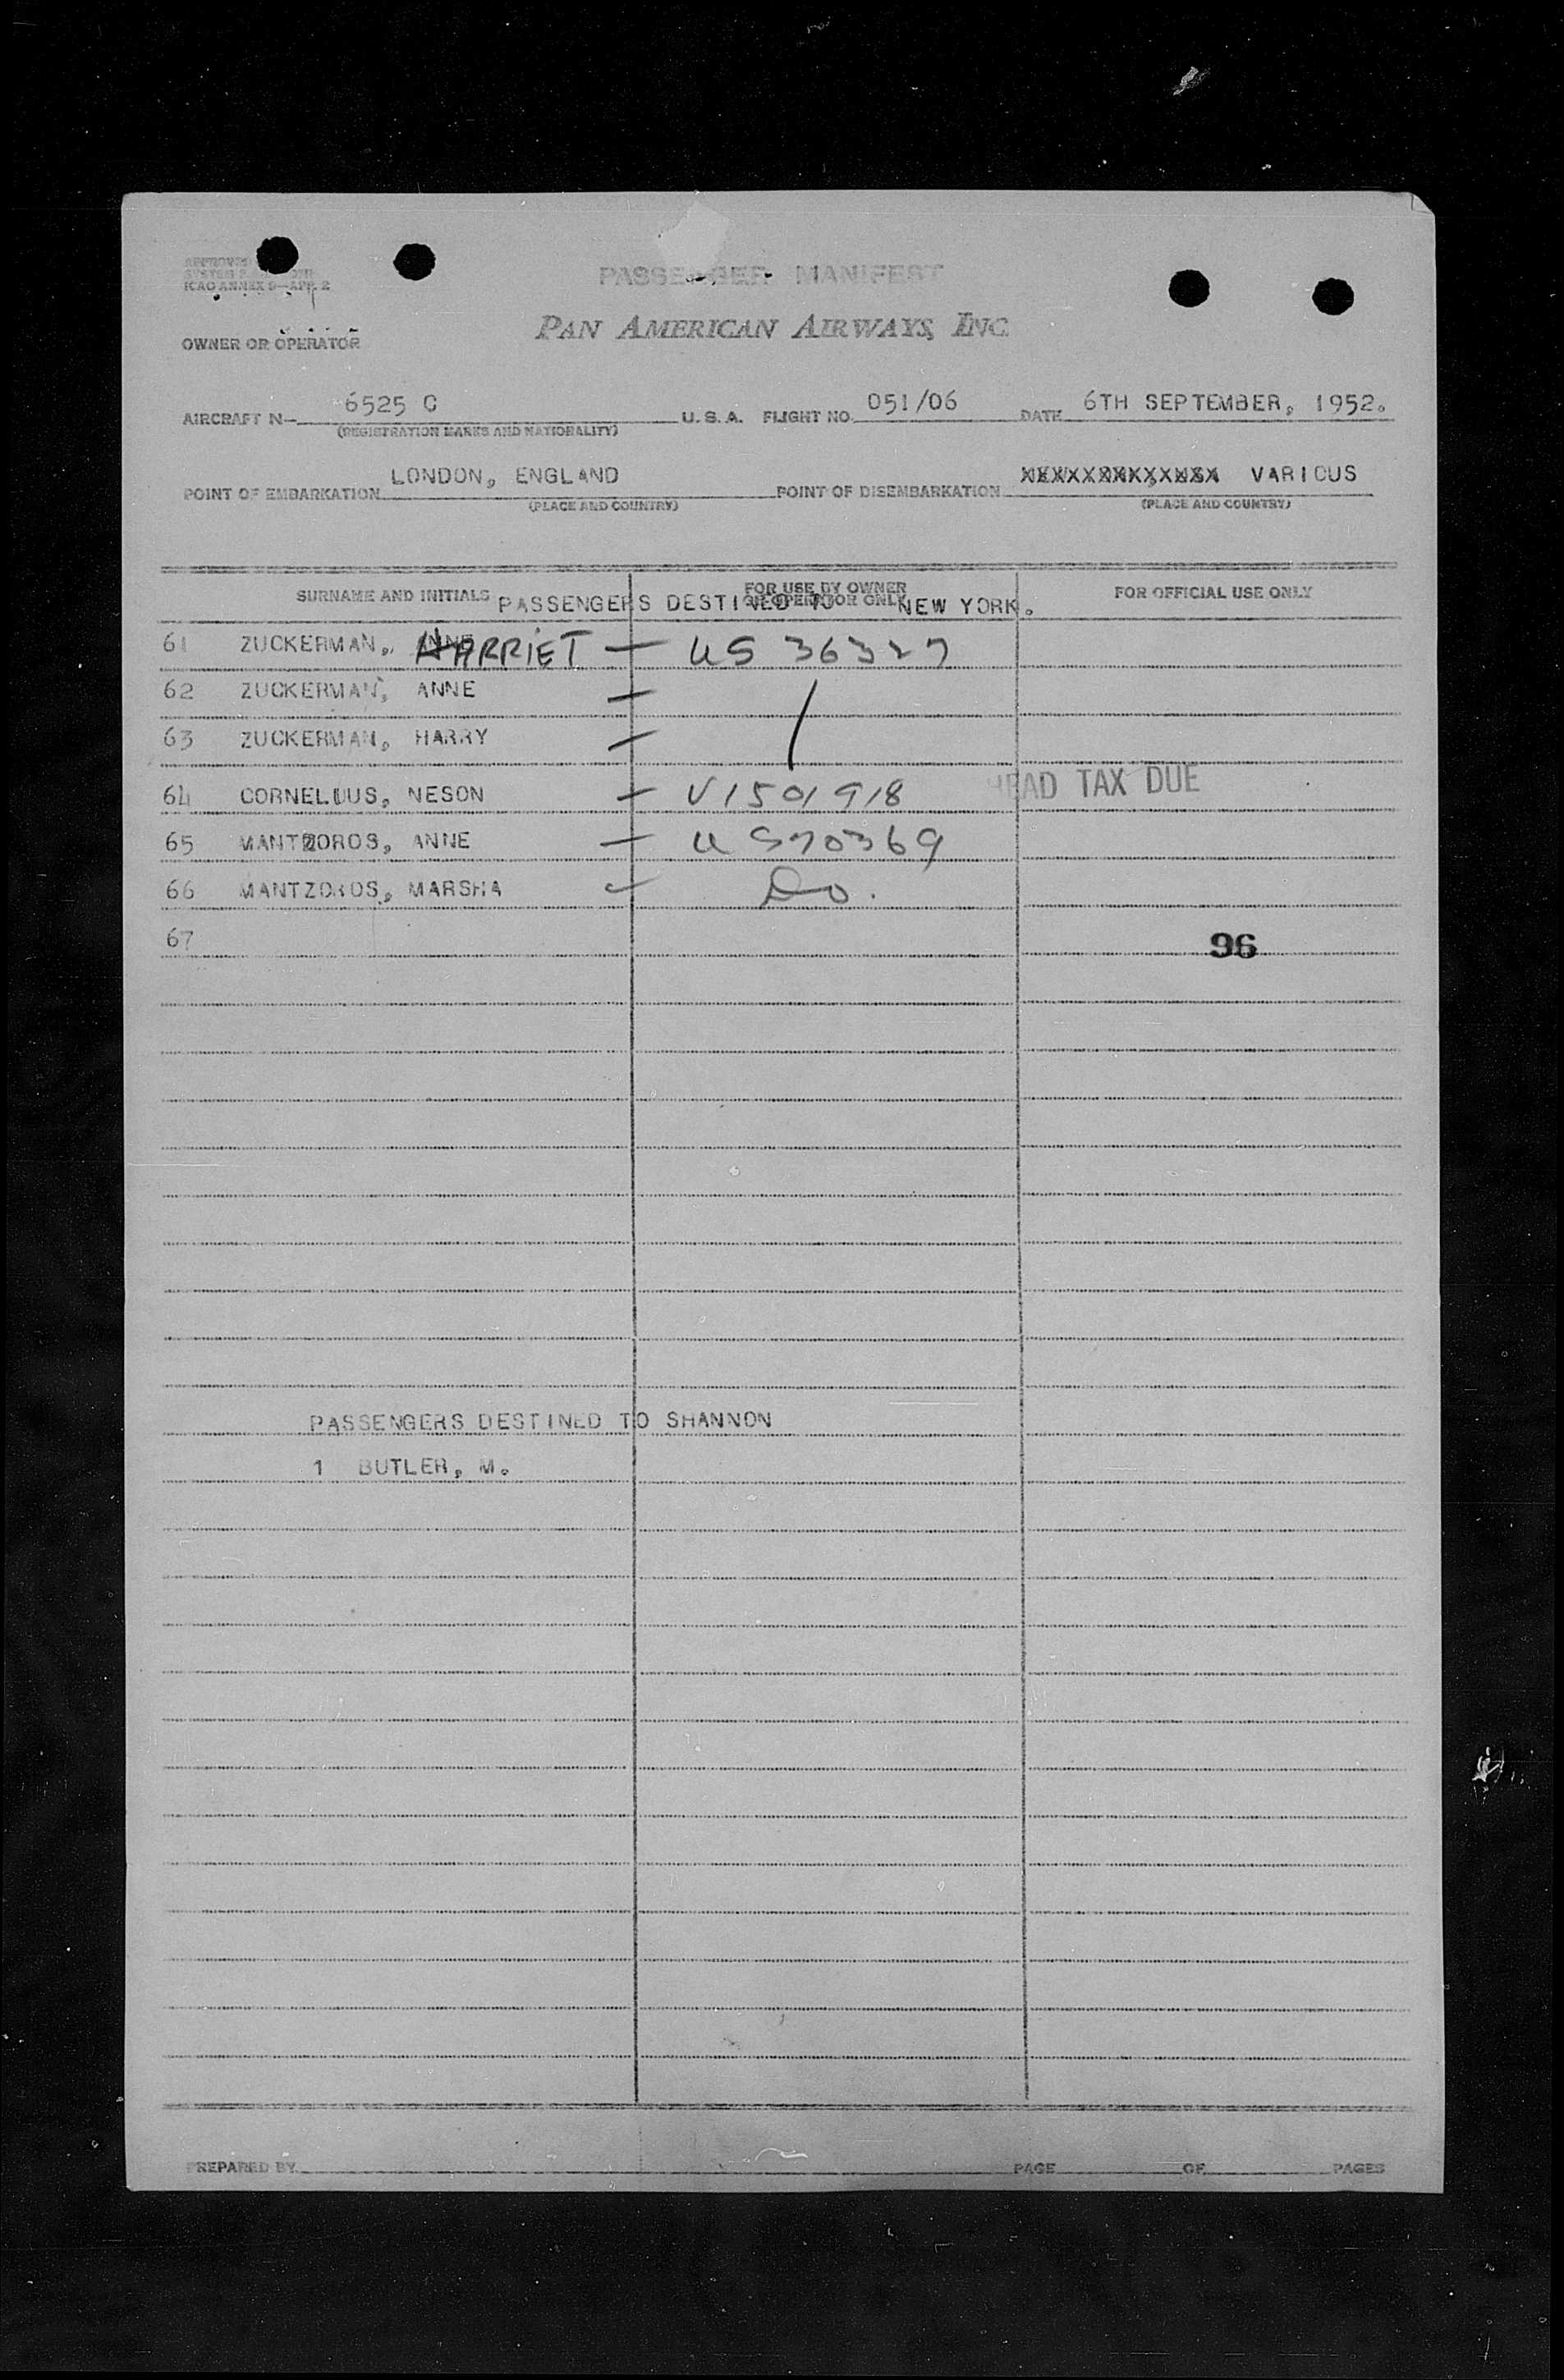 ICAO ANNEX 9—APP. 2
PASSENGER MANIFEST
PAN AMERICAN AIRWAYS, INC.
OWNER OR OPERATOR
AIRCRAFT N— 6525 C U.S.A. FLIGHT NO. 051/06 DATE 6TH SEPTEMBER, 1952.
(REGISTRATION MARKS AND NATIONALITY)
POINT OF EMBARKATION LONDON, ENGLAND POINT OF DISEMBARKATION VARIOUS
(PLACE AND COUNTRY) (PLACE AND COUNTRY)
SURNAME AND INITIALS FOR USE BY OWNER OR OPERATOR ONLY FOR OFFICIAL USE ONLY
PASSENGERS DESTINED TO NEW YORK.
61 ZUCKERMAN, HARRIET — US 36327
62 ZUCKERMAN, ANNE —
63 ZUCKERMAN, HARRY —
64 CORNELIUS, NESON — V1501918 HEAD TAX DUE
65 MANTZOROS, ANNE — US70369
66 MANTZOROS, MARSHA — Do.
67 96
PASSENGERS DESTINED TO SHANNON
1 BUTLER, M.
PREPARED BY PAGE OF PAGES